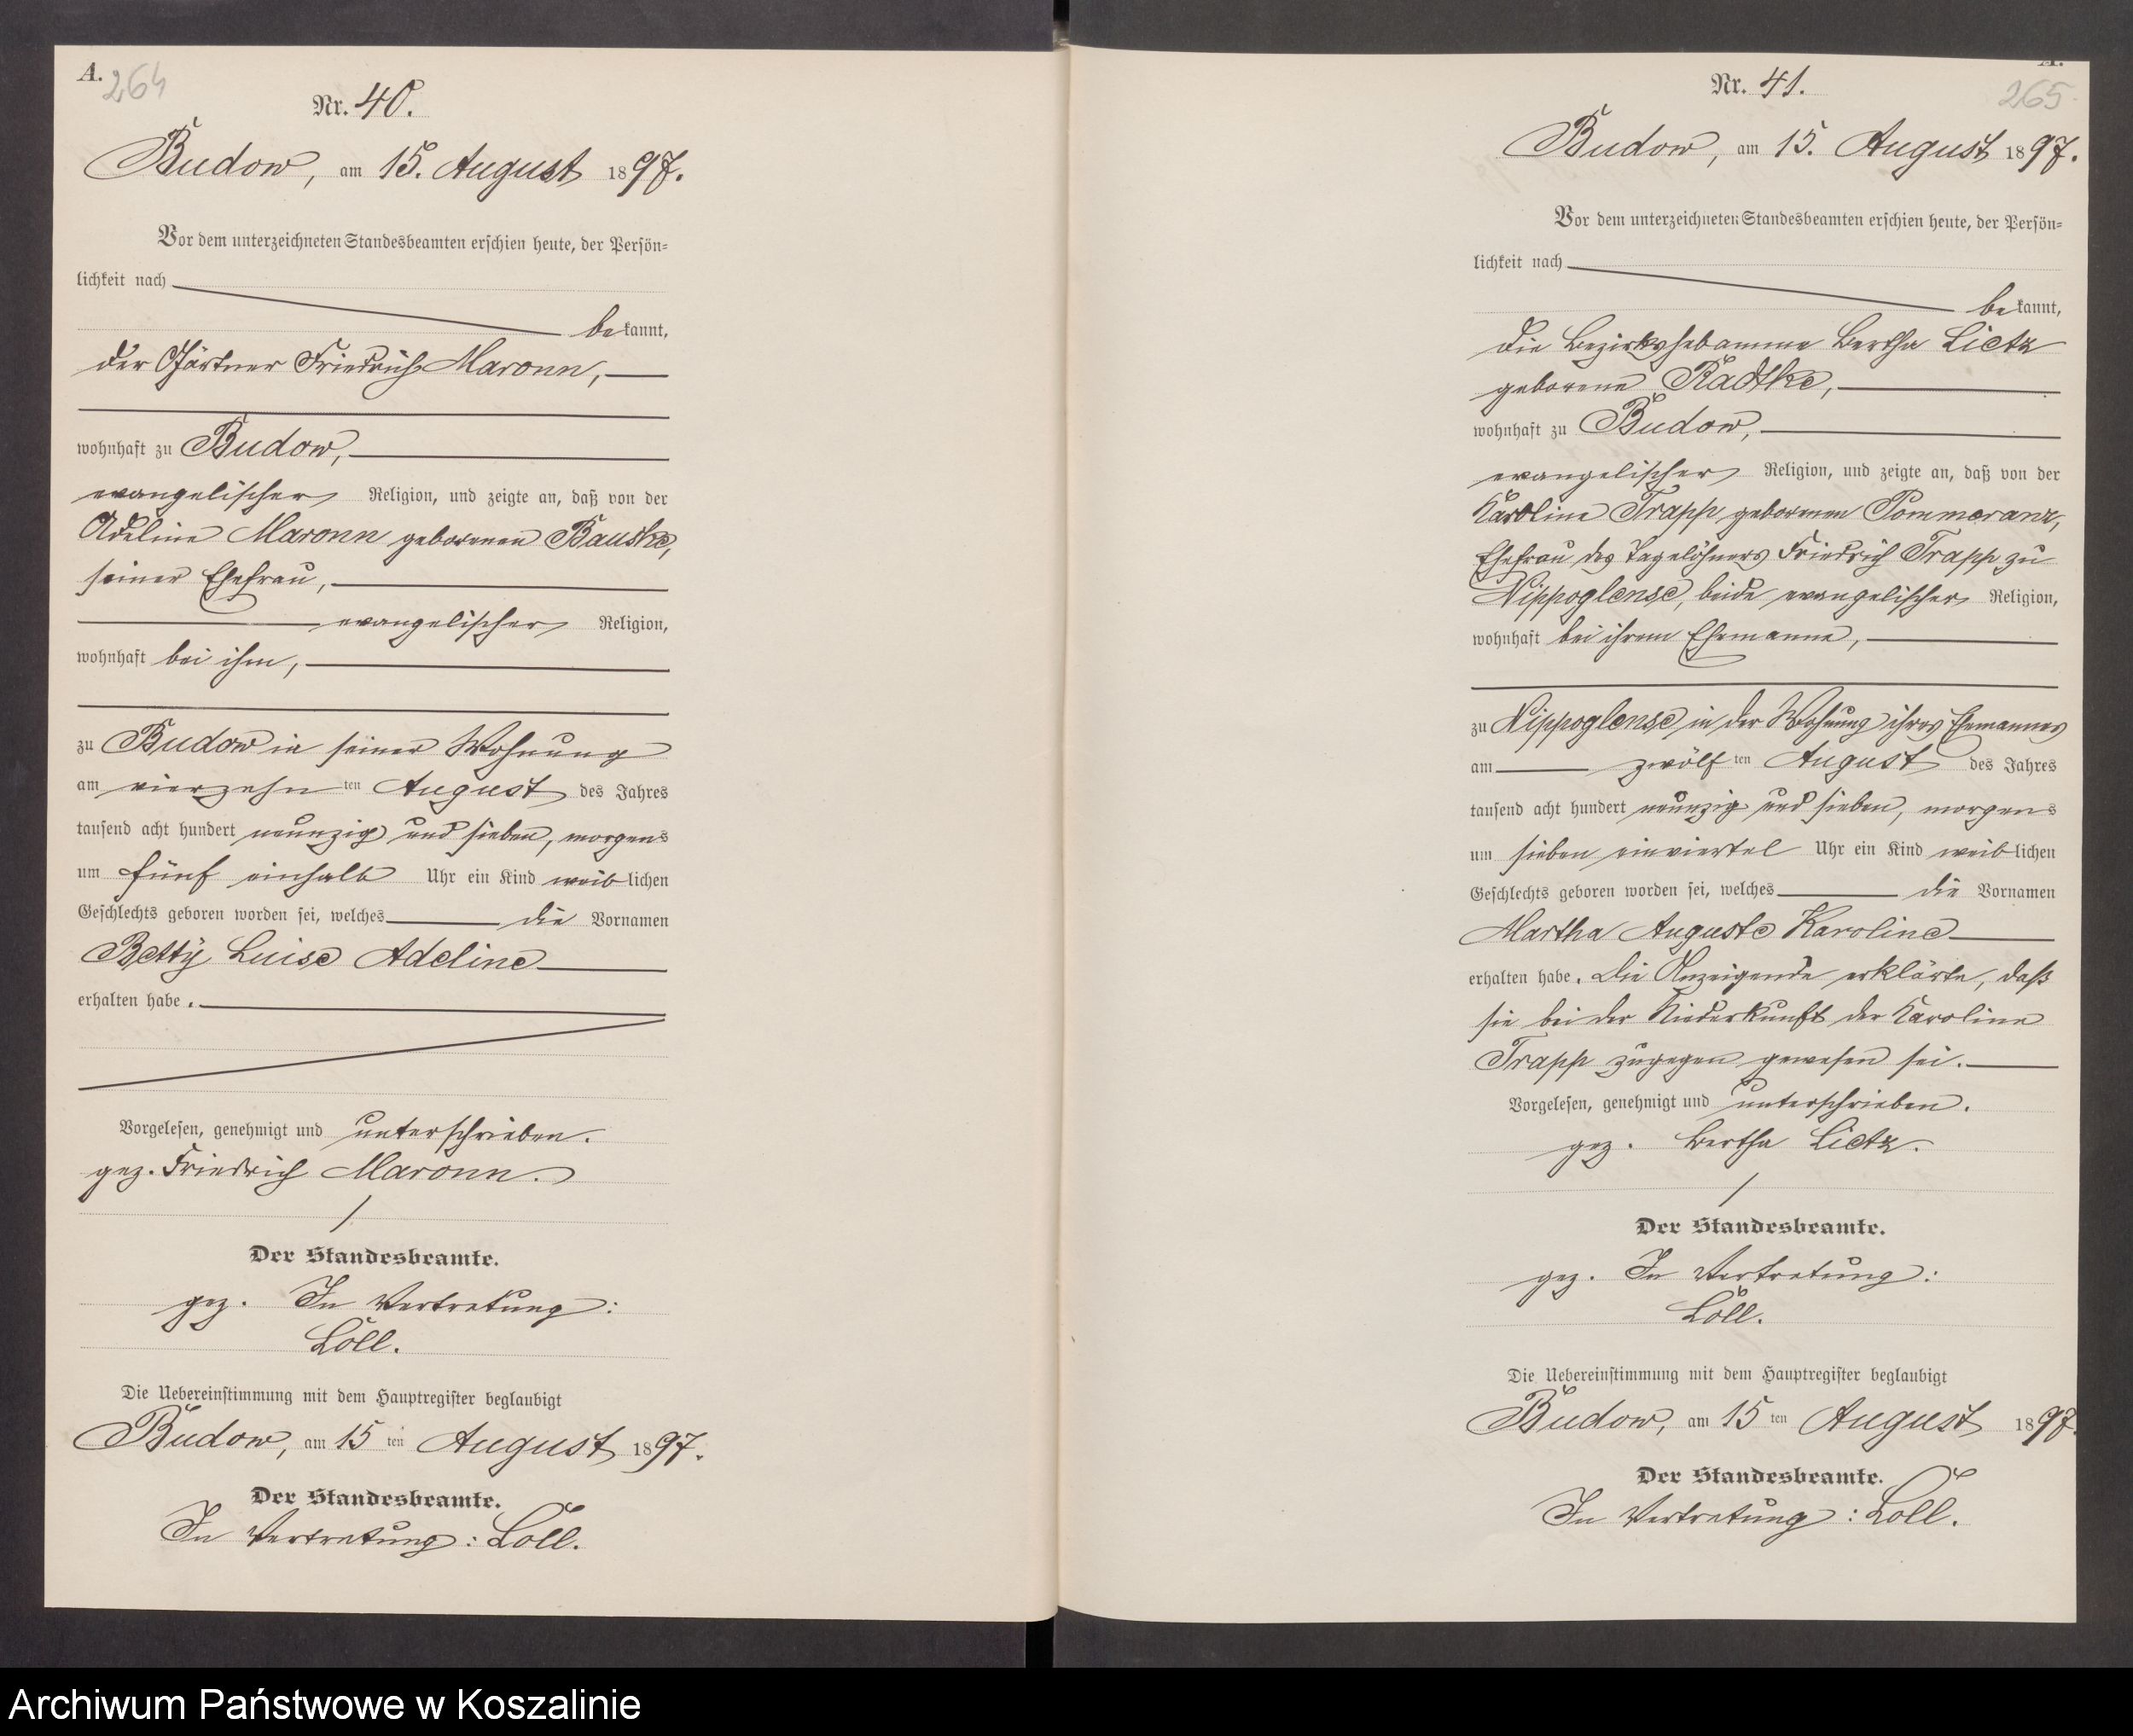 A.
264
Nr. 40.
Budow, am 15. August 1897.
Vor dem unterzeichneten Standesbeamten erschien heute, der Persön=
lichkeit nach
bekannt,
der Gärtner Friedrich Maronn,
wohnhaft zu Budow,
evangelischer Religion, und zeigte an, daß von der
Adeline Maronn geborenen Bauske,
seiner Ehefrau,
evangelischer Religion,
wohnhaft bei ihm,
zu Budow in seiner Wohnung
am vierzehnten August des Jahres
tausend acht hundert neunzig und sieben, morgens
um fünf einhalb Uhr ein Kind weiblichen
Geschlechts geboren worden sei, welches die Vornamen
Betty Luise Adeline
erhalten habe.
Vorgelesen, genehmigt und unterschrieben.
gez. Friedrich Maronn.
Der Standesbeamte.
gez. In Vertretung:
Löll.
Die Uebereinstimmung mit dem Hauptregister beglaubigt
Budow, am 15ten August 1897.
Der Standesbeamte.
In Vertretung: Löll.
A.
265
Nr. 41.
Budow, am 15. August 1897.
Vor dem unterzeichneten Standesbeamten erschien heute, der Persön=
lichkeit nach
bekannt,
die Bezirkshebamme Bertha Lietz
geborene Radtke,
wohnhaft zu Budow,
evangelischer Religion, und zeigte an, daß von der
Karoline Trapp geborenen Pommeranz,
Ehefrau des Tagelöhners Friedrich Trapp zu
Nippoglense, beide evangelischer Religion,
wohnhaft bei ihrem Ehemanne,
zu Nippoglense in der Wohnung ihres Ehemannes
am zwölften August des Jahres
tausend acht hundert neunzig und sieben, morgens
um sieben einviertel Uhr ein Kind weiblichen
Geschlechts geboren worden sei, welches die Vornamen
Martha Auguste Karoline
erhalten habe. Die Anzeigende erklärte, daß
sie bei der Niederkunft der Karoline
Trapp zugegen gewesen sei.
Vorgelesen, genehmigt und unterschrieben.
gez. Bertha Lietz.
Der Standesbeamte.
gez. In Vertretung:
Löll.
Die Uebereinstimmung mit dem Hauptregister beglaubigt
Budow, am 15ten August 1897.
Der Standesbeamte.
In Vertretung: Löll.
Archiwum Państwowe w Koszalinie